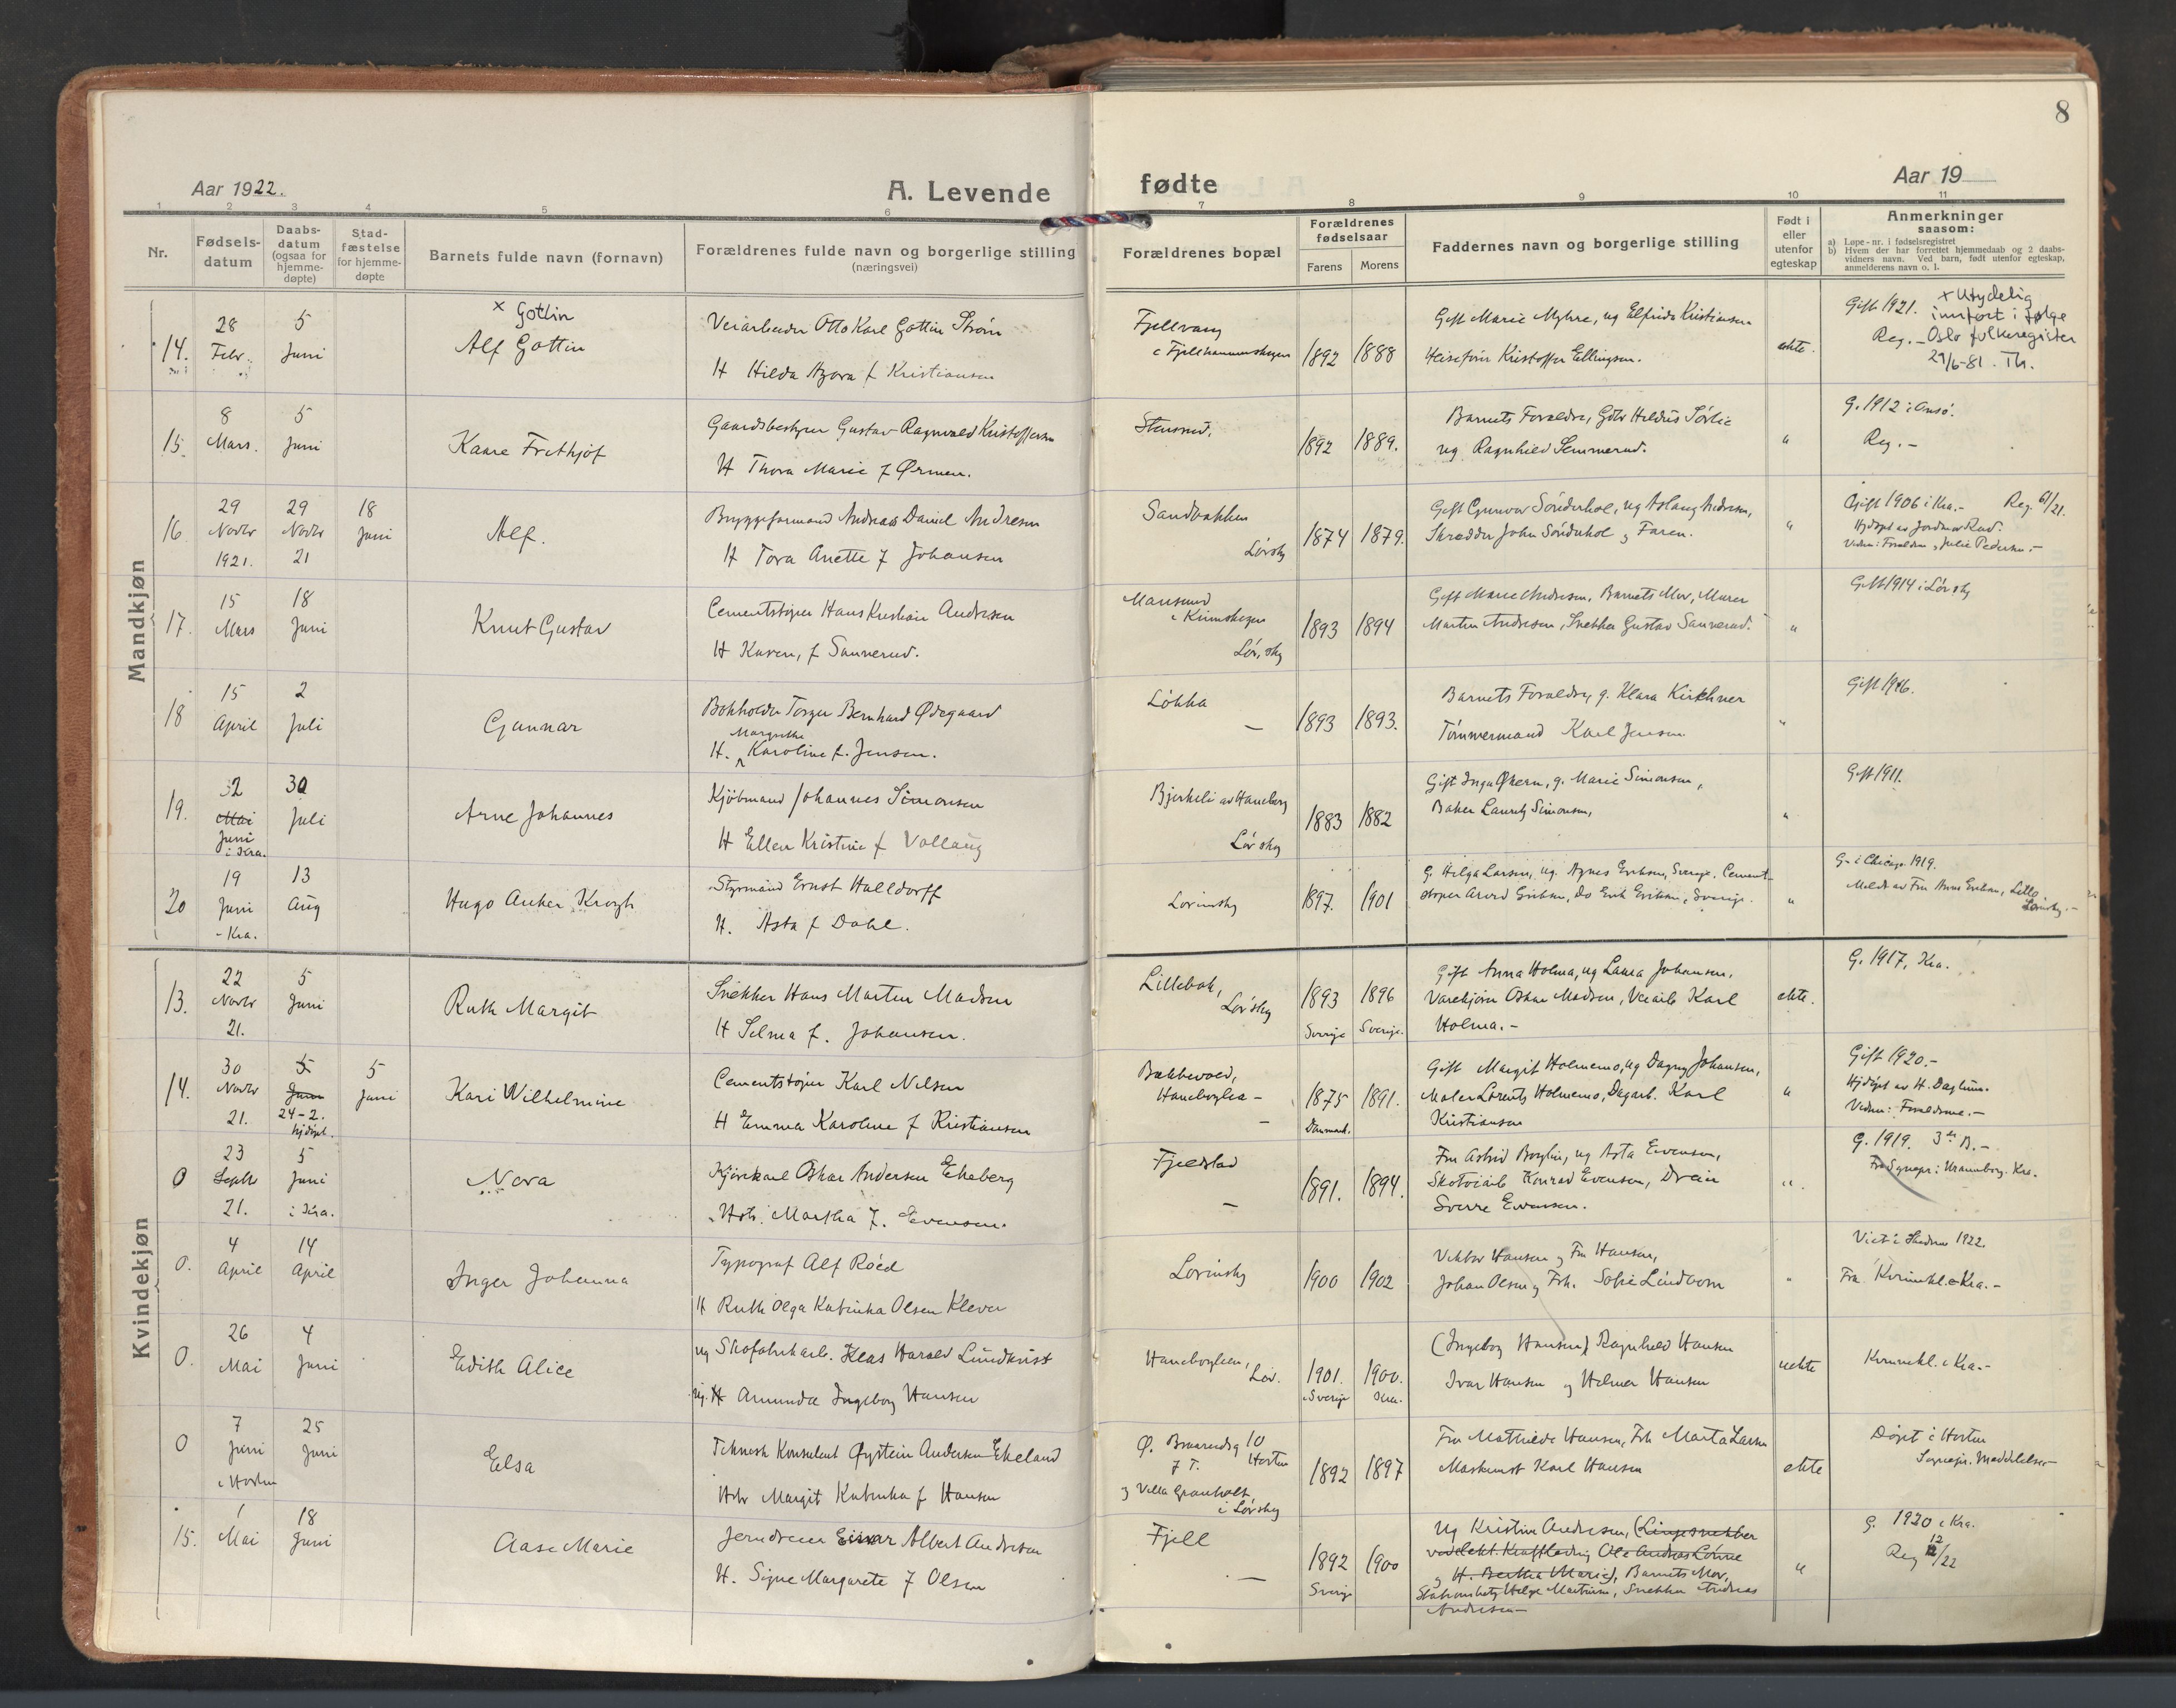 8
Aar 1922.
A. Levende
fødte
Aar 19
1 2 3 4 5 6 7 8 9 10 11
Nr.
Fødsels-
datum
Daabs-
datum
(ogsaa for
hjemme-
døpte)
Stad-
fæstelse
for hjemme-
døpte
Barnets fulde navn (fornavn)
Forældrenes fulde navn og borgerlige stilling
(næringsvei)
Forældrenes bopæl
Forældrenes
fødselsaar
Farens
Morens
Faddernes navn og borgerlige stilling
Født i
eller
utenfor
egteskap
Anmerkninger
saasom:
a) Løpe-nr. i fødselsregistret
b) Hvem der har forrettet hjemmedaab og 2 daabs-
vidners navn. Ved barn, født utenfor egteskap,
anmelderens navn o. l.
Mandkjøn
14.
28
Febr.
5
Juni
x Gottin
Alf Gottin
Veiarbeider Otto Karl Gottin Strøm
H Hilda Azora f Kristiansen
Fjellvang
i Fjellhammerskogen
1892
1888
Gift Marie Myhre, ug Elfrida Kristiansen
Kristoffer Ellingsen.
ekte.
Gift 1921.
Reg. -
x Utydelig
innført i følge
Oslo folkeregister
29/6-81. Th.
15.
8
Mars.
5
Juni
Kaare Frithjof
Gaardsbestyrer Gustav Ragnvald Kristoffersen
H Thora Marie f Ørmen.
Stensrud.
1892
1889.
Barnets Forældre, Gdbr Hildus Sørlie
ug. Ragnhild Semmerud.
"
G. 1912 i Onsø.
Reg. -
16.
29
Novbr
1921.
29
Novbr
21
18
Juni
Alf.
Bryggeformand Andreas Daniel Andresen
H Tora Anette f Johansen
Sandbakken
Lørsky
1874
1879.
Gift Gunvor Sönderhol, ug Aslaug Andresen,
Skrædder John Sönderhol og Faren.
"
Gift 1906 i Kra. - Reg. 61/21.
Hjdøpt av Jordmor Rud.
Vidner: Forældrene og Julie Pedersen. -
17.
15
Mars
18
Juni
Knut Gustav
Cementstøper Hans Kristian Andresen
H Karen, f Sannerud.
Lør.sky
1893
1894
Gift Marie Andresen, Barnets Mor, Murer
Martin Andresen, Snekker Gustav Sannerud.
"
Gift 1914 i Lørsky
18
15
April
2
Juli
Gunnar
Bokholder Torger Bernhard Ødegaard
Margrethe
H. Karoline f. Jensen.
Løkka
-
1893
1893.
Barnets Forældre, g. Klara Kirkhner
Tömmermand Karl Jensen
"
Gift 1916.
19.
2
Mai
Juni
i Kra.
30
Juli
Arne Johannes
Kjöbmand Johannes Simonsen
H Ellen Kristine f Vollaug
Bjerkeli av Haneborg
Lørsky
1883
1882
Gift Inga Økern, g. Marie Simonsen,
Baker Lauritz Simonsen,
"
Gift 1911.
20
19
Juni
- Kra.
13
Aug
Hugo Anker Krogh
Styrmand Ernst Halldorff
H. Asta f Dahl.
Lørinsky
1897.
1901
G Helga Larsen, ug. Agnes Eriksen, Sverige. Cement-
støper Arvid Eriksen, do Erik Eriksen, Sverige.
"
G. i Chicago 1919.
Meldt av Fru Anna Eriksen, Lille
Lørinsky. -
Kvindekjøn
13.
22
Novbr
21.
5
Juni
Ruth Margit
Snekker Hans Martin Madsen
H Selma f. Johansen.
Lillebok,
Lørsky
1893
Sverige
1896
Sverige.
Gift Anna Holma, ug Laura Johansen,
Varekjører Oskar Madsen, Veiarb Karl
Holma. -
ekte.
G. 1917, Kra.
14.
30
Novbr
21.
5
Juni
24-2.
hjdøpt.
5
Juni
Kari Wilhelmine
Cementstøper Karl Nilsen
H Emma Karoline f Kristiansen
Bakkevold,
Haneborglia -
-
1875
Danmark.
1891.
Gift Margit Holmemo, ug Dagny Johansen,
Maler Lorentz Holmemo, Dagarb. Karl
Kristiansen
"
Gift 1920. -
Hjdøpt av H. Daglund.
Vidner: Forældrene. -
0
23
Septbr
21.
5
Juni
i Kra.
Nora
Kjørekarl Oskar Andersen Ekeberg
Hstr. Martha f. Evensen.
Fjeldstad
-
1891.
1894.
Fru Astrid Borglin, ug Asta Evensen,
Skotøiarb Konrad Evensen, Dreier
Sverre Evensen.
"
G. 1919. 3die B. -
Fra Sognepr. i Uranienborg. Kra.
0.
4
April
14
April
Inger Johanna
Typograf Alf Röed
H Ruth Olga Katinka Olsen Klever
Lørinsky
1900
1902
Viktor Hansen og Fru Hansen,
Johan Olsen og Frk. Sofie Lindbom
"
Viet i 1922.
Fra Kvinnekl. i Kra. -
0.
26
Mai
4
Juni
Edith Alice
ug Skofabrikarb. Klas Harald Lundkvist
ug. H Amunda Ingeborg Hansen
Haneborglien,
Lør.
1901.
i Sverige
1900.
Kra.
(Ingeborg Hansen) Ragnhild Hansen
Ivar Hansen og Helmer Hansen
uekte
Kvinnekl. i Kra. -
0
7
Juni
i Horten
25
Juni
Elsa
Teknisk Konsulent Øystein Andersen Ekeland
Hstr Margit Katinka f Hansen
Ø. Braarudg 10
f T. Horten
og Villa Granholt
i Lørsky
1892
1897
Fru Mathilde Hansen, Frk Marta Larsen
Maskinist Karl Hansen
ekte
Døpt i Horten
Sognepr. Meddelelse -
15.
1
Mai
18
Juni
Aase Marie
Jerndreier Einar Albert Andresen
H. Signe Margarete f Olsen
Fjell
-
1892
Sverige
1900
Ug Kristine Andresen, (Linjesnekker
ved elekt. Kraftledning Ole Andreas Lønne
og H. Bertha Marie), Barnets Mor,
Stationsbetj Helge Martinsen, Snekker Andreas
Andresen -
"
G. 1920 i Kra.
Reg 12/22